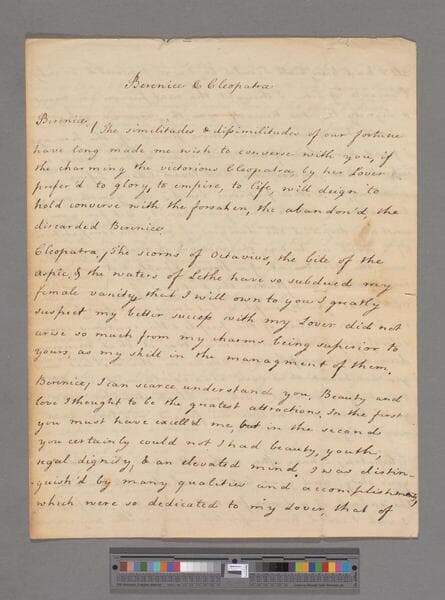 Berenice & Cleopatra
Berenice. The similitudes & dissimilitudes of our fortune
have long made me wish to converse with you, if
the charming the victorious Cleopatra, by her Lover
prefer'd to glory, to empire, to life, will deign to
hold converse with the forsaken, the abandon'd, the
discarded Berenice.
Cleopatra, The scorns of Octavius, the bite of the
aspic, & the waters of Lethe have so subdued my
female vanity, that I will own to you I greatly
suspect my better success with my Lover did not
arise so much from my charms being superior to
yours, as my skill in the managment of them.
Berenice, I can scarce understand you. Beauty and
love I thought to be the greatest attractions. In the first
you must have excell'd me, but in the second
you certainly could not I had beauty, youth,
regal dignity, & an elevated mind. I was distin-
guish'd by many qualities and accomplishments,
which were so dedicated to my Lover, that of